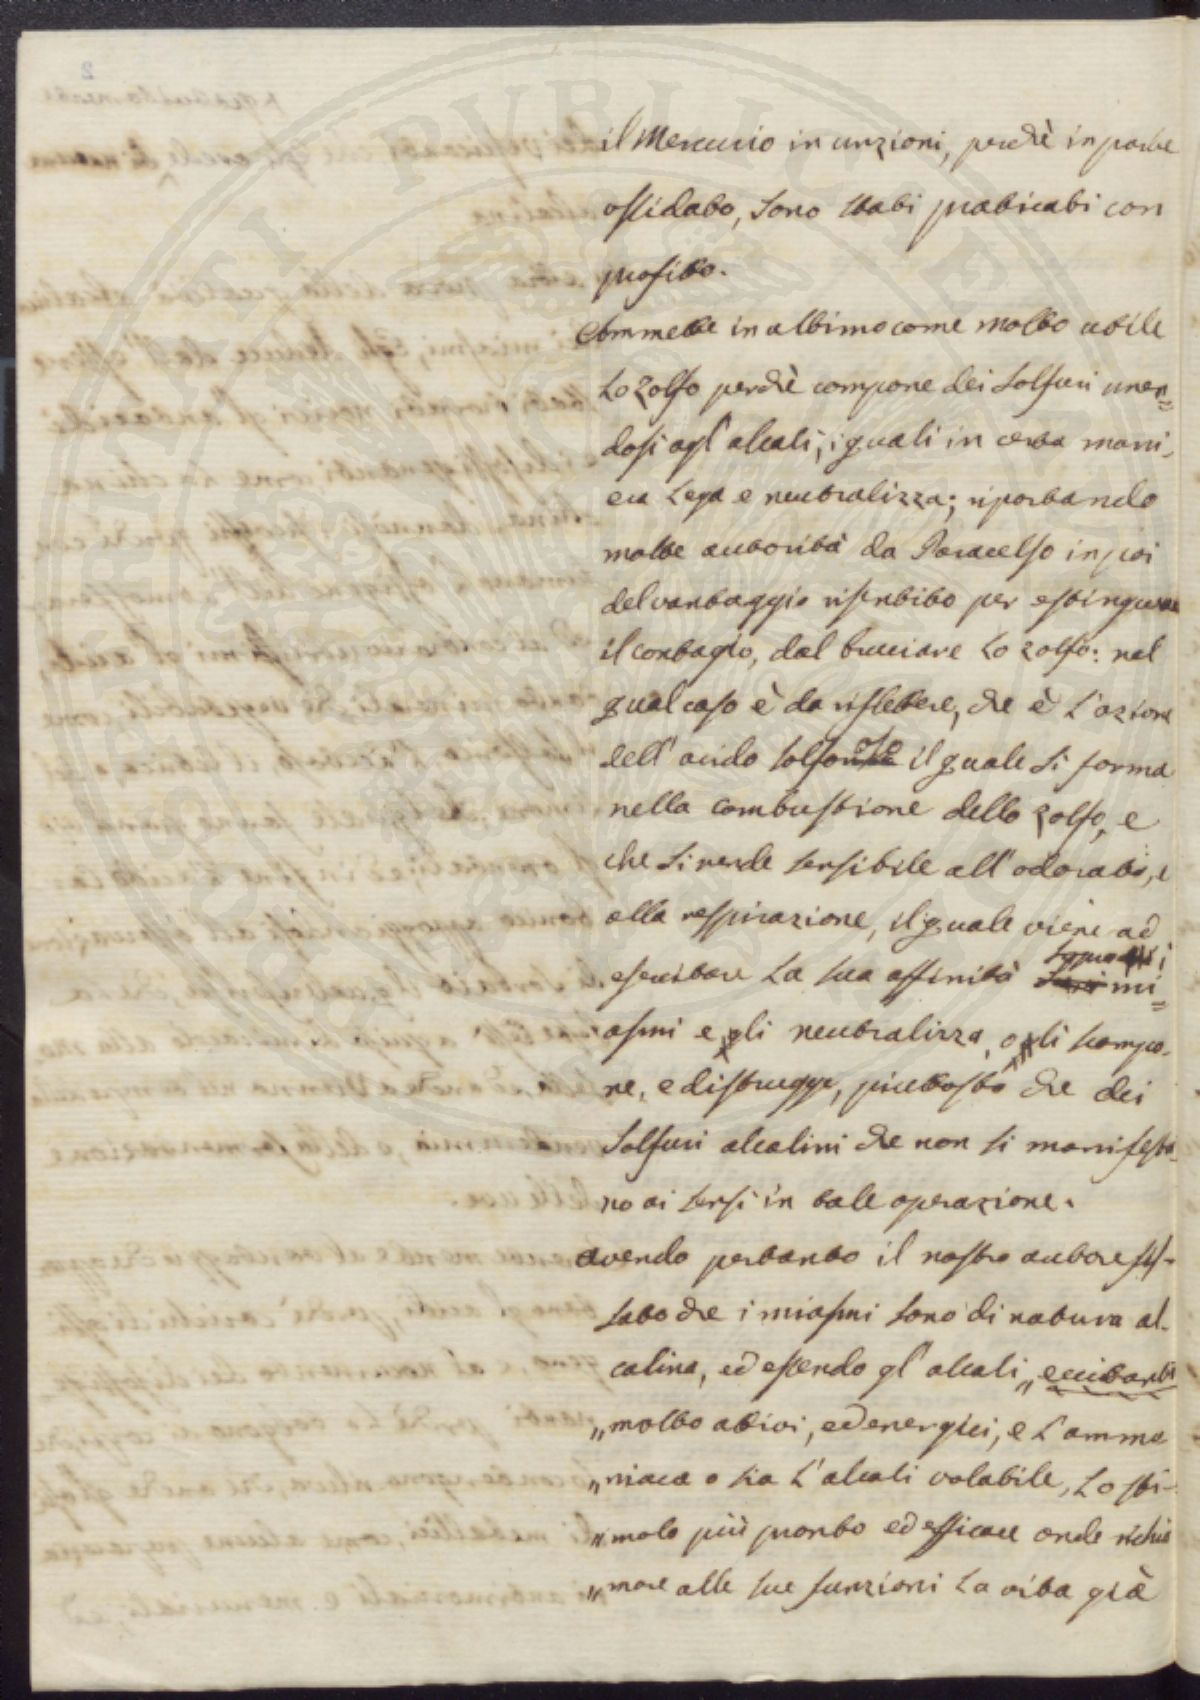 il Mercurio in unzioni, perchè in parte
ossidato, sono stati praticati con
profitto.
Ammette in altimo come molto utile
lo zolfo perchè compone dei solfuri unen=
dosi agl'alcali, i quali in certa mani-
era lega e neutralizza; riportando
molte autorità da Paracelso in poi
del vantaggio risentito per estinguere
il contagio, dal bruciare lo zolfo: nel
qual caso è da riflettere, che è l'azione
dell'acido solforoso il quale si forma
nella combustione dello zolfo, e
che si rende sensibile all'odorato, e
alla respirazione, il quale viene ad
esercitare la sua affinità sopra i mi=
asmi e gli neutralizza, o gli scompo-
ne, e distrugge, piuttosto che dei
solfuri alcalini che non si manifesta-
no ai sensi in tale operazione.
Avendo pertanto il nostro autore fis-
sato che i miasmi sono di natura al-
calina, ed essendo gl'alcali „eccitanti
„molto attivi, ed energici, e l'ammo
„niaca o sia l'alcali volatile, lo sti-
„molo più pronto ed efficace onde richia
„mare alle sue funzioni la vita già